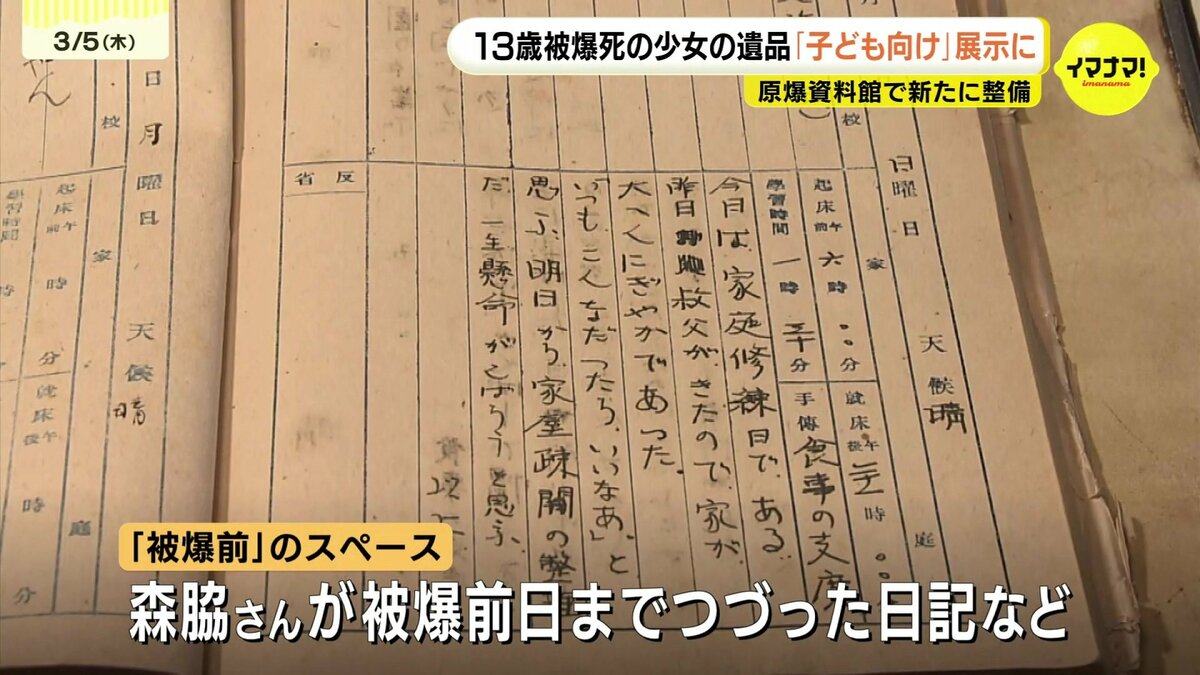 3/5(木)
13歳被爆死の少女の遺品「子ども向け」展示に
原爆資料館で新たに整備
イマナマ!
imanama
校
日曜日
天候晴
家
庭
起床午前六時〇〇分
就床午後
時
学習時間一時三十分
手傳食事の支度
今日は家庭修練日である
昨日
叔父がきたので、家が
大へんにぎやかであった。
「いつもこんなだったら、いいなあ」と
思ふ、明日から、家屋疎開の整理
だ。一生懸命がんばらうと思ふ。
反省
校
日月曜日
天候晴
家
庭
起床午前
時
分
就床午後
時
分
學習時間
時
「被爆前」のスペース
森脇さんが被爆前日までつづった日記など